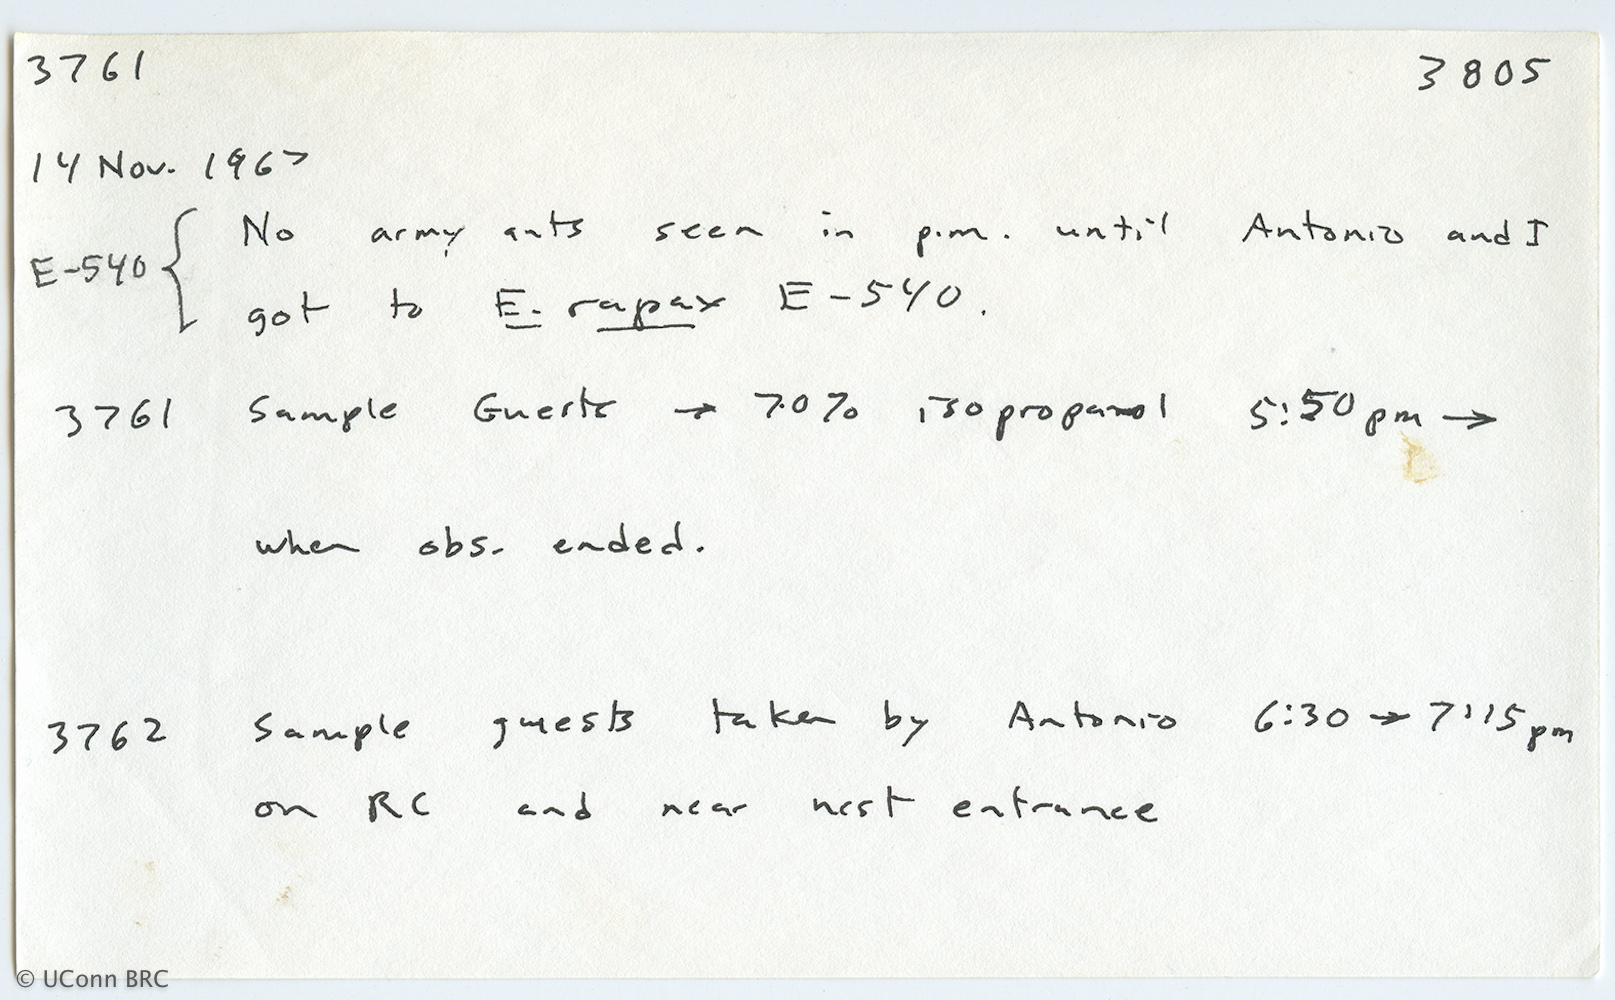 3761 3805
14 Nov. 1967
E-540 { No army ants seen in p.m. until Antonio and I
got to E. rapax E-540.
3761 Sample Guests → 70% isopropanol 5:50 pm →
when obs. ended.
3762 Sample guests taken by Antonio 6:30 → 7:15 pm
on RC and near nest entrance
© UConn BRC